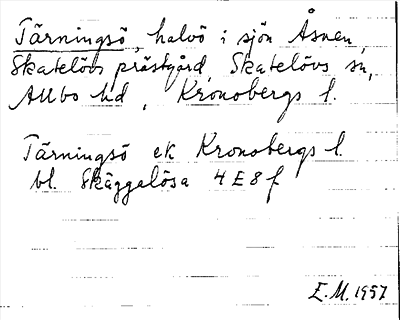 Tärningsö, halvö i sjön Åsnen,
Skatelövs prästgård, Skatelövs sn,
Allbo hd, Kronobergs l.
Tärningsö ek Kronobergs l.
bl. Skäggalösa 4E8f
E.M. 1957